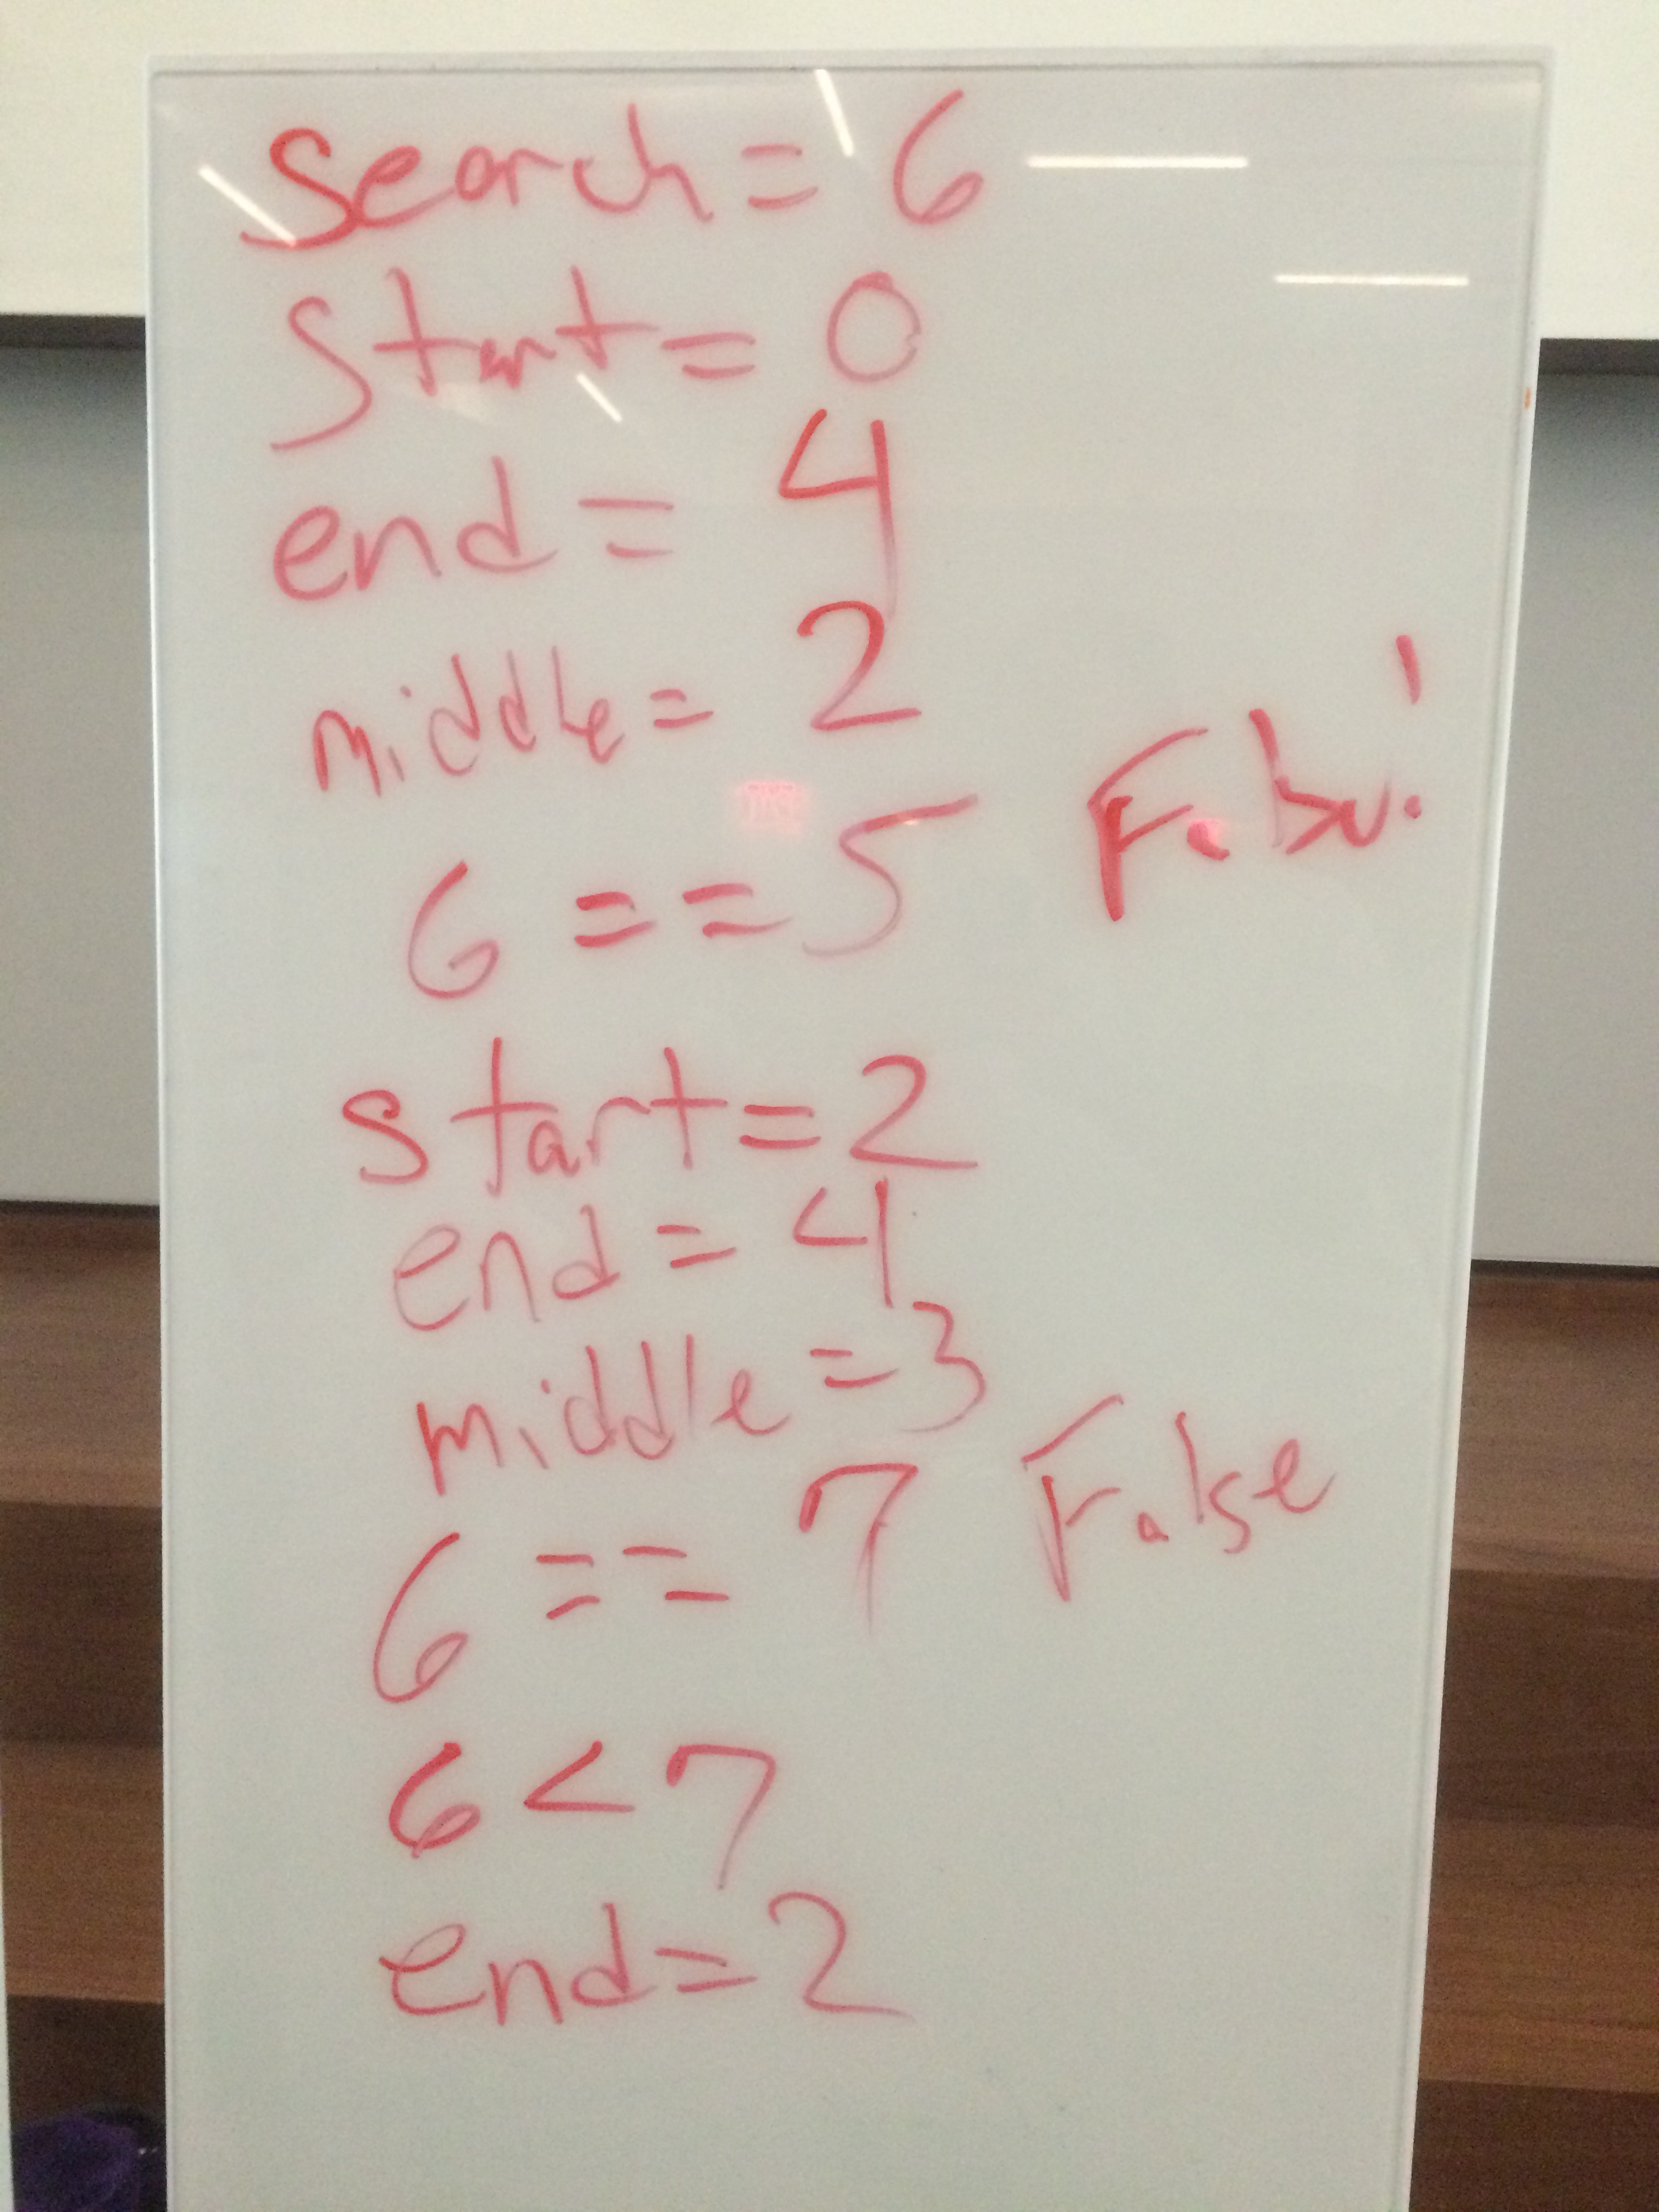 search = 6
start = 0
end = 4
middle = 2
6 == 5 False!
start = 2
end = 4
middle = 3
6 == 7 False
6 < 7
end = 2